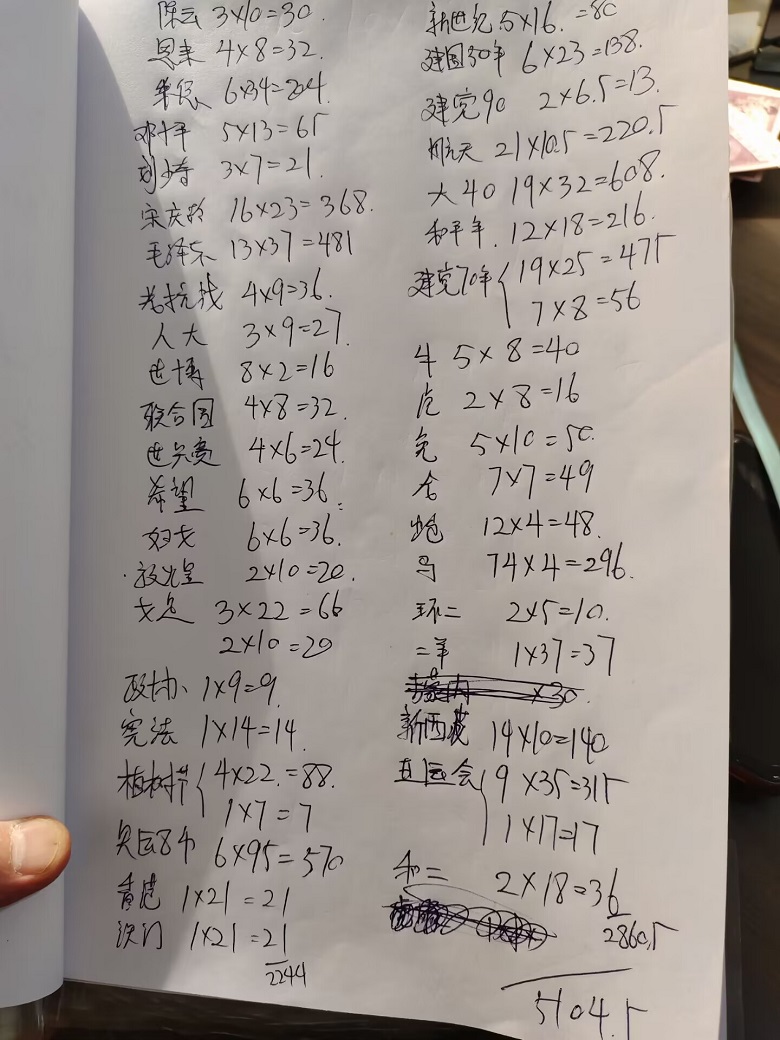 陈云 3×10=30.
恩来 4×8=32.
朱德 6×34=204.
邓小平 5×13=65
刘少奇 3×7=21.
宋庆龄 16×23=368.
毛泽东 13×37=481
老抗战 4×9=36.
人大 3×9=27.
世博 8×2=16
联合国 4×8=32.
世乒赛 4×6=24.
希望 6×6=36.
妇女 6×6=36.
2×10=20.
女足 3×22=66
2×10=20
政协 1×9=9.
宪法 1×14=14.
植树节 4×22.=88.
1×7=7
6×95=570
香港 1×21=21
澳门 1×21=21
2244
新世纪 5×16.=80
建国30年 6×23=138.
建党90 2×6.5=13.
航天 21×10.5=220.5
大40 19×32=608.
和平年. 12×18=216.
建党70年 19×25=475
7×8=56
牛 5×8=40
虎 2×8=16
兔 5×10=50.
龙 7×7=49
蛇 12×4=48.
马 74×4=296.
环二 2×5=10.
二羊 1×37=37
×30.
新西藏 14×10=140
9×35=315
1×17=17
和二 2×18=36
2860.5
5104.5